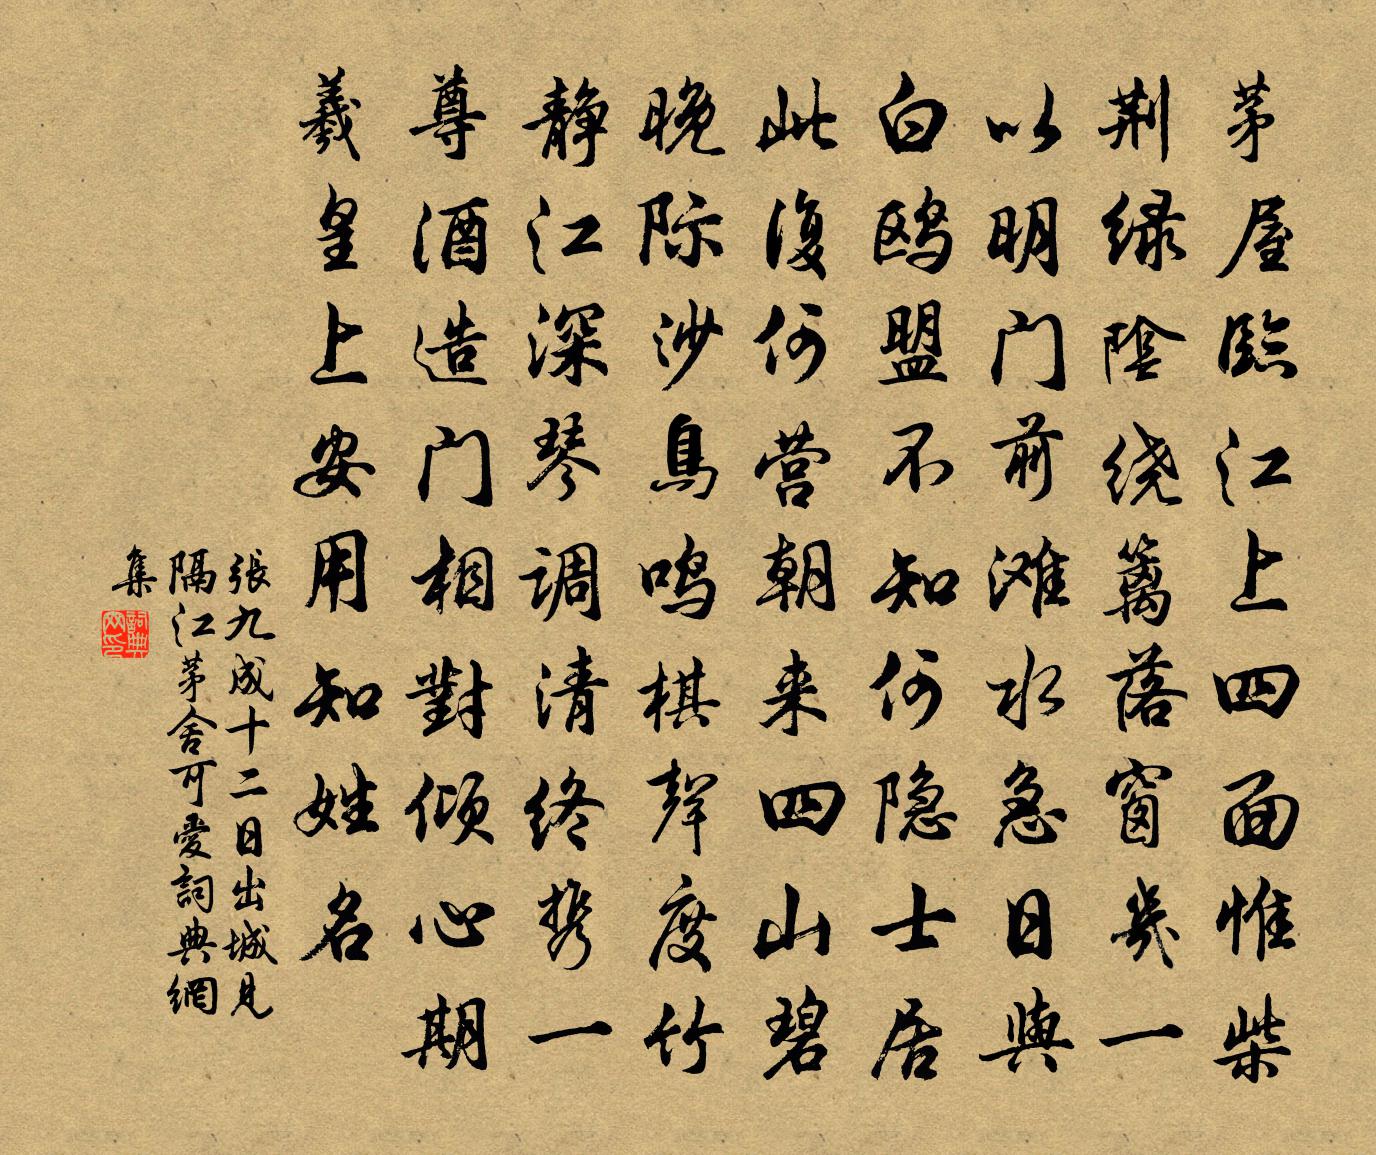 茅屋臨江上四面惟柴
荆绿陰绕篱落窗幾一
以明门前滩水急日與
白鸥盟不知何隐士居
此復何营朝来四山碧
晚际沙鳥鸣棋聲度竹
静江深琴调清终携一
尊酒造门相對倾心期
羲皇上安用知姓名
張九成十二日出城見
隔江茅舍可愛詞典網
集
詞典網印